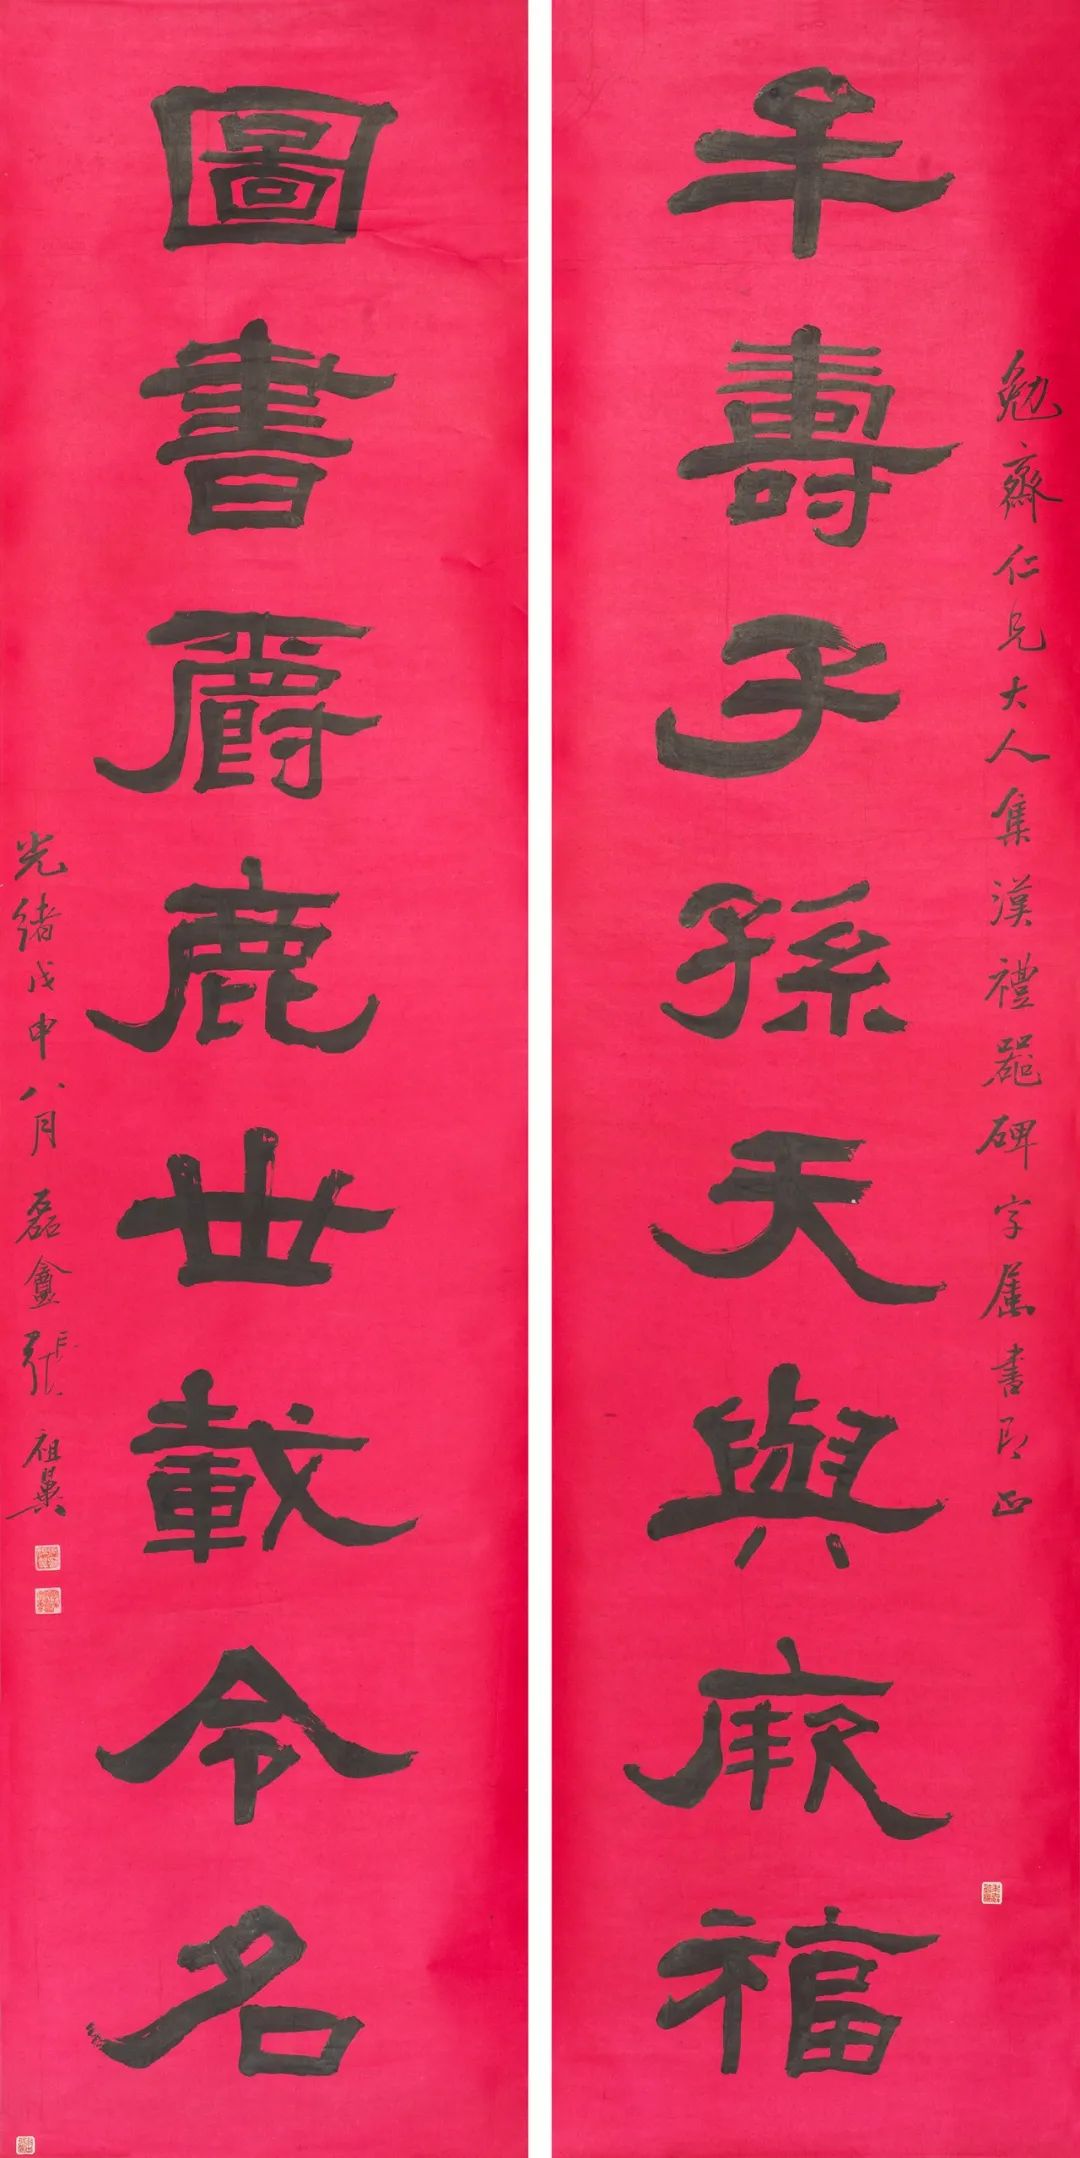 勉齋仁兄大人集漢禮器碑字屬書即正
年壽子孫天與厥福
圖書爵鹿世載令名
光緒戊申八月磊盦張祖翼